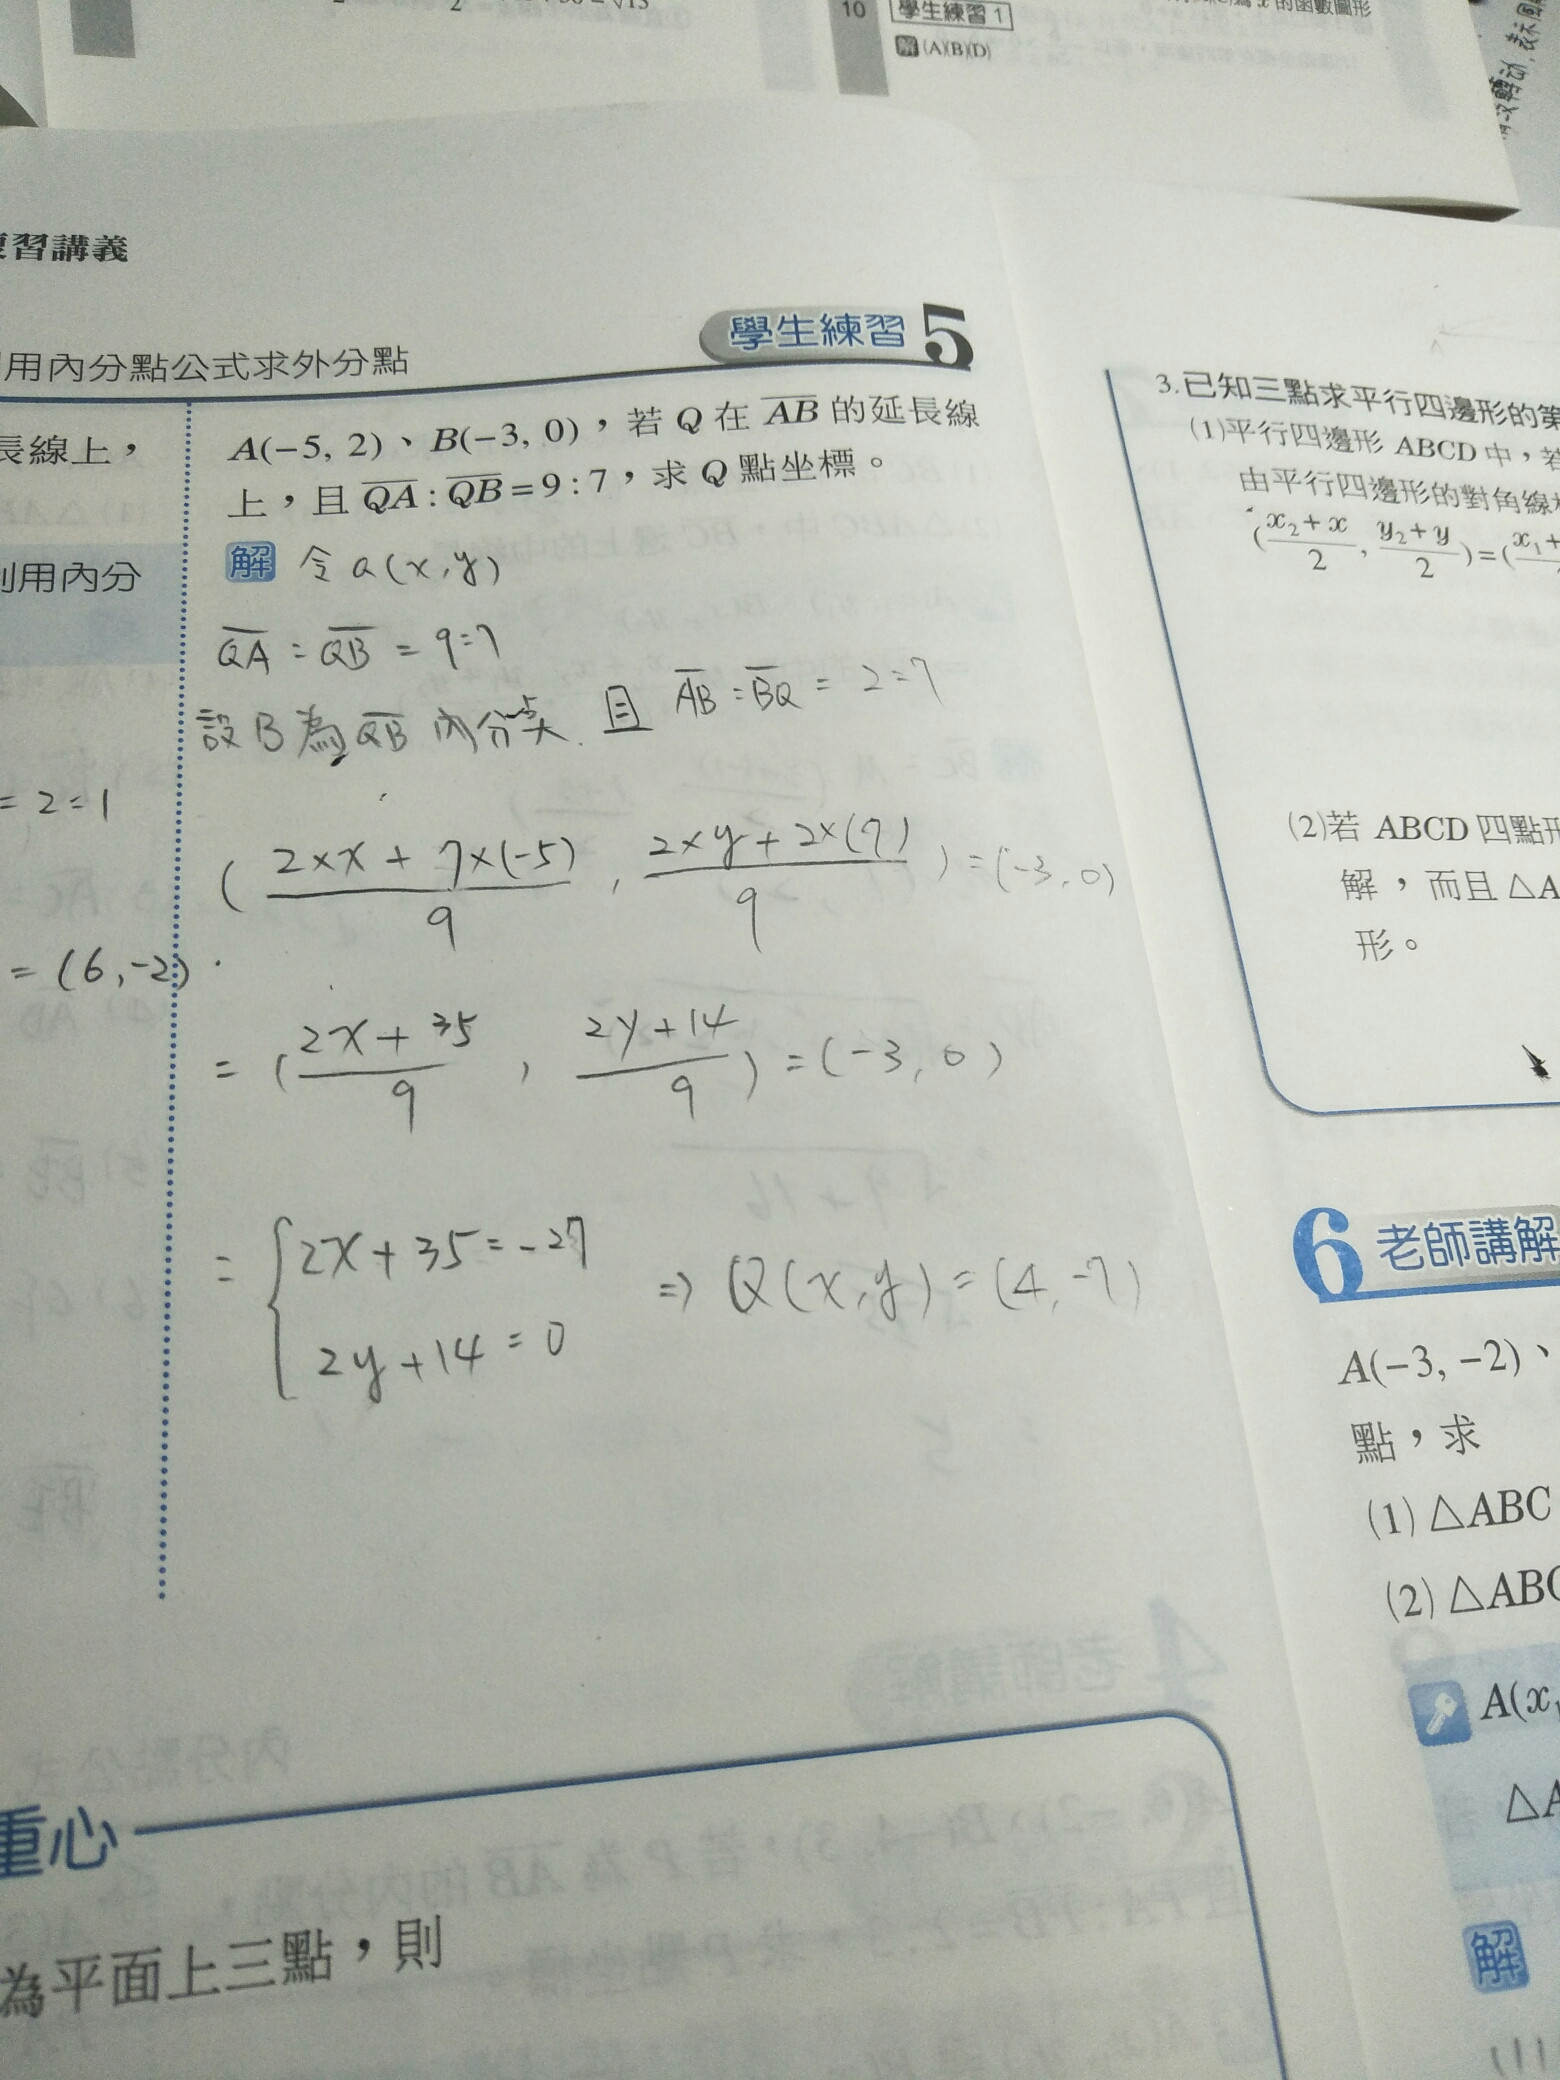 10 學生練習 1
解 (A)(B)(D)
複習講義
用內分點公式求外分點
學生練習 5
長線上,
利用內分
= 2:1
= (6,-2)
A(−5, 2)、B(−3, 0),若 Q 在 AB 的延長線
上,且 QA : QB = 9 : 7,求 Q 點坐標。
解 令 Q(x,y)
QA : QB = 9:7
設 B 為 QB 內分點 且 AB : BQ = 2:7
( 2×x + 7×(-5) / 9 , 2×y + 2×(7) / 9 ) = (-3,0)
= ( 2x + 35 / 9 , 2y + 14 / 9 ) = (-3,0)
= { 2x + 35 = -27
2y + 14 = 0 ⇒ Q(x,y) = (4,-7)
重心
為平面上三點,則
3.已知三點求平行四邊形的第
(1)平行四邊形 ABCD 中,若
由平行四邊形的對角線
( x₂ + x / 2 , y₂ + y / 2 ) = ( x₁ +
(2)若 ABCD 四點形
解,而且 △A
形。
6 老師講解
A(−3, −2)、
點,求
(1) △ABC
(2) △ABC
A(x
△A
解